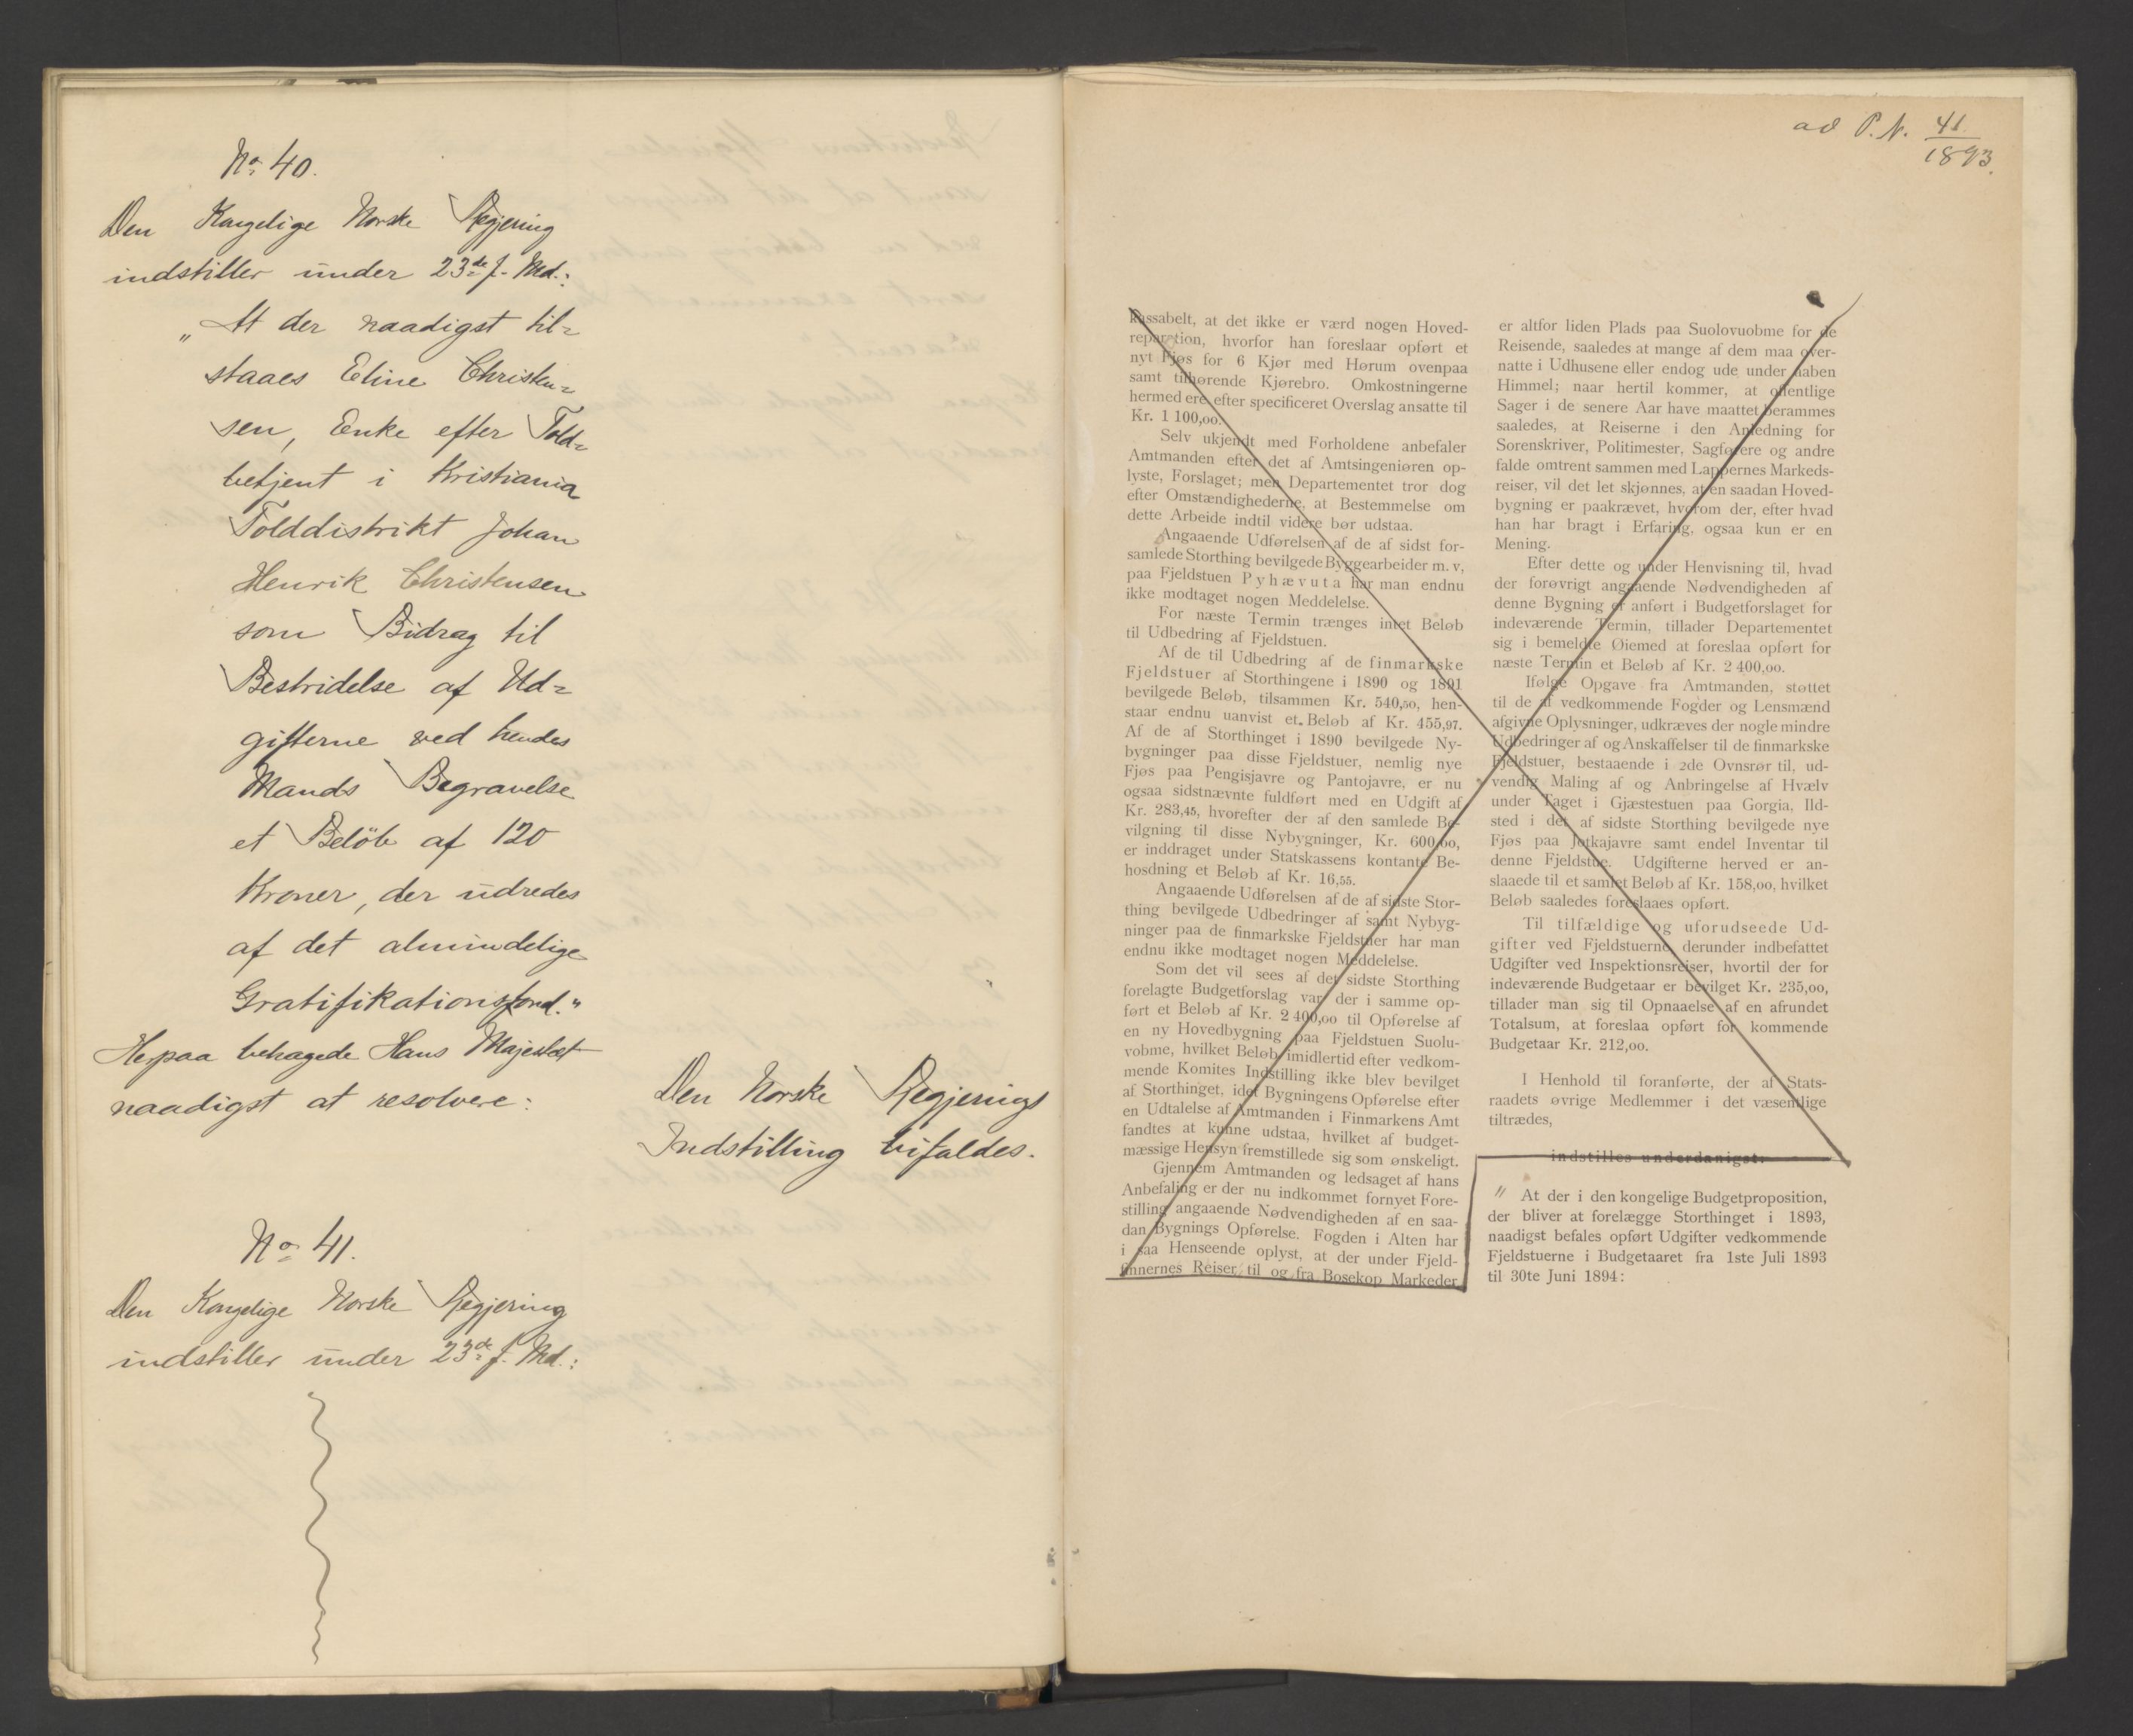 No. 40.
Den Kongelige Norske Regjering
indstiller under 23de f. Md.:
„At der naadigst til=
staaes Eline Christen=
sen, Enke efter Told=
betjent i Kristiania
Tolddistrikt Johan
Henrik Christensen
som Bidrag til
Bestridelse af Ud=
gifterne ved hendes
Mands Begravelse
et Beløb af 120
Kroner, der udredes
af det almindelige
Gratifikationsfond."
Herpaa behagede Hans Majestæt
naadigst at resolvere:
Den Norske Regjerings
Indstilling bifaldes.
No. 41.
Den Kongelige Norske Regjering
indstiller under 23de f. Md.:
ad P. N. 41
1893.
kassabelt, at det ikke er værd nogen Hoved-
reparation, hvorfor han foreslaar opført et
nyt Fjøs for 6 Kjør med Hørum ovenpaa
samt tilhørende Kjørebro. Omkostningerne
hermed ere efter specificeret Overslag ansatte til
Kr. 1 100,00.
Selv ukjendt med Forholdene anbefaler
Amtmanden efter det af Amtsingeniøren op-
lyste, Forslaget; men Departementet tror dog
efter Omstændighederne, at Bestemmelse om
dette Arbeide indtil videre bør udstaa.
Angaaende Udførelsen af de af sidst for-
samlede Storthing bevilgede Byggearbeider m. v,
paa Fjeldstuen Pyhævuta har man endnu
ikke modtaget nogen Meddelelse.
For næste Termin trænges intet Beløb
til Udbedring af Fjeldstuen.
Af de til Udbedring af de finmarkske
Fjeldstuer af Storthingene i 1890 og 1891
bevilgede Beløb, tilsammen Kr. 540,50, hen-
staar endnu uanvist et Beløb af Kr. 455,97.
Af de af Storthinget i 1890 bevilgede Ny-
bygninger paa disse Fjeldstuer, nemlig nye
Fjøs paa Pengisjavre og Pantojavre, er nu
ogsaa sidstnævnte fuldført med en Udgift af
Kr. 283,45, hvorefter der af den samlede Be-
vilgning til disse Nybygninger, Kr. 600,00,
er inddraget under Statskassens kontante Be-
hosdning et Beløb af Kr. 16,55.
Angaaende Udførelsen af de af sidste Stor-
thing bevilgede Udbedringer af samt Nybyg-
ninger paa de finmarkske Fjeldstuer har man
endnu ikke modtaget nogen Meddelelse.
Som det vil sees af det sidste Storthing
forelagte Budgetforslag var der i samme op-
ført et Beløb af Kr. 2 400,00 til Opførelse af
en ny Hovedbygning paa Fjeldstuen Suolu-
vobme, hvilket Beløb imidlertid efter vedkom-
mende Komites Indstilling ikke blev bevilget
af Storthinget, idet Bygningens Opførelse efter
en Udtalelse af Amtmanden i Finmarkens Amt
fandtes at kunne udstaa, hvilket af budget-
mæssige Hensyn fremstillede sig som ønskeligt.
Gjennem Amtmanden og ledsaget af hans
Anbefaling er der nu indkommet fornyet Fore-
stilling angaaende Nødvendigheden af en saa-
dan Bygnings Opførelse. Fogden i Alten har
i saa Henseende oplyst, at der under Fjeld-
finnernes Reiser til og fra Bosekop Markeder
er altfor liden Plads paa Suolovuobme for de
Reisende, saaledes at mange af dem maa over-
natte i Udhusene eller endog ude under aaben
Himmel; naar hertil kommer, at offentlige
Sager i de senere Aar have maattet berammes
saaledes, at Reiserne i den Anledning for
Sorenskriver, Politimester, Sagførere og andre
falde omtrent sammen med Lappernes Markeds-
reiser, vil det let skjønnes, at en saadan Hoved-
bygning er paakrævet, hvorom der, efter hvad
han har bragt i Erfaring, ogsaa kun er en
Mening.
Efter dette og under Henvisning til, hvad
der forøvrigt angaaende Nødvendigheden af
denne Bygning er anført i Budgetforslaget for
indeværende Termin, tillader Departementet
sig i bemeldte Øiemed at foreslaa opført for
næste Termin et Beløb af Kr. 2 400,00.
Ifølge Opgave fra Amtmanden, støttet
til de af vedkommende Fogder og Lensmænd
afgivne Oplysninger, udkræves der nogle mindre
Udbedringer af og Anskaffelser til de finmarkske
Fjeldstuer, bestaaende i 2de Ovnsrør til, ud-
vendig Maling af og Anbringelse af Hvælv
under Taget i Gjæstestuen paa Gorgia, Ild-
sted i det af sidste Storthing bevilgede nye
Fjøs paa Jotkajavre samt endel Inventar til
denne Fjeldstue. Udgifterne herved er an-
slaaede til et samlet Beløb af Kr. 158,00, hvilket
Beløb saaledes foreslaaes opført.
Til tilfældige og uforudseede Ud-
gifter ved Fjeldstuerne, derunder indbefattet
Udgifter ved Inspektionsreiser, hvortil der for
indeværende Budgetaar er bevilget Kr. 235,00,
tillader man sig til Opnaaelse af en afrundet
Totalsum, at foreslaa opført for kommende
Budgetaar Kr. 212,00.
I Henhold til foranførte, der af Stats-
raadets øvrige Medlemmer i det væsentlige
tiltrædes,
indstilles underdanigst:
" At der i den kongelige Budgetproposition,
der bliver at forelægge Storthinget i 1893,
naadigst befales opført Udgifter vedkommende
Fjeldstuerne i Budgetaaret fra 1ste Juli 1893
til 30te Juni 1894: